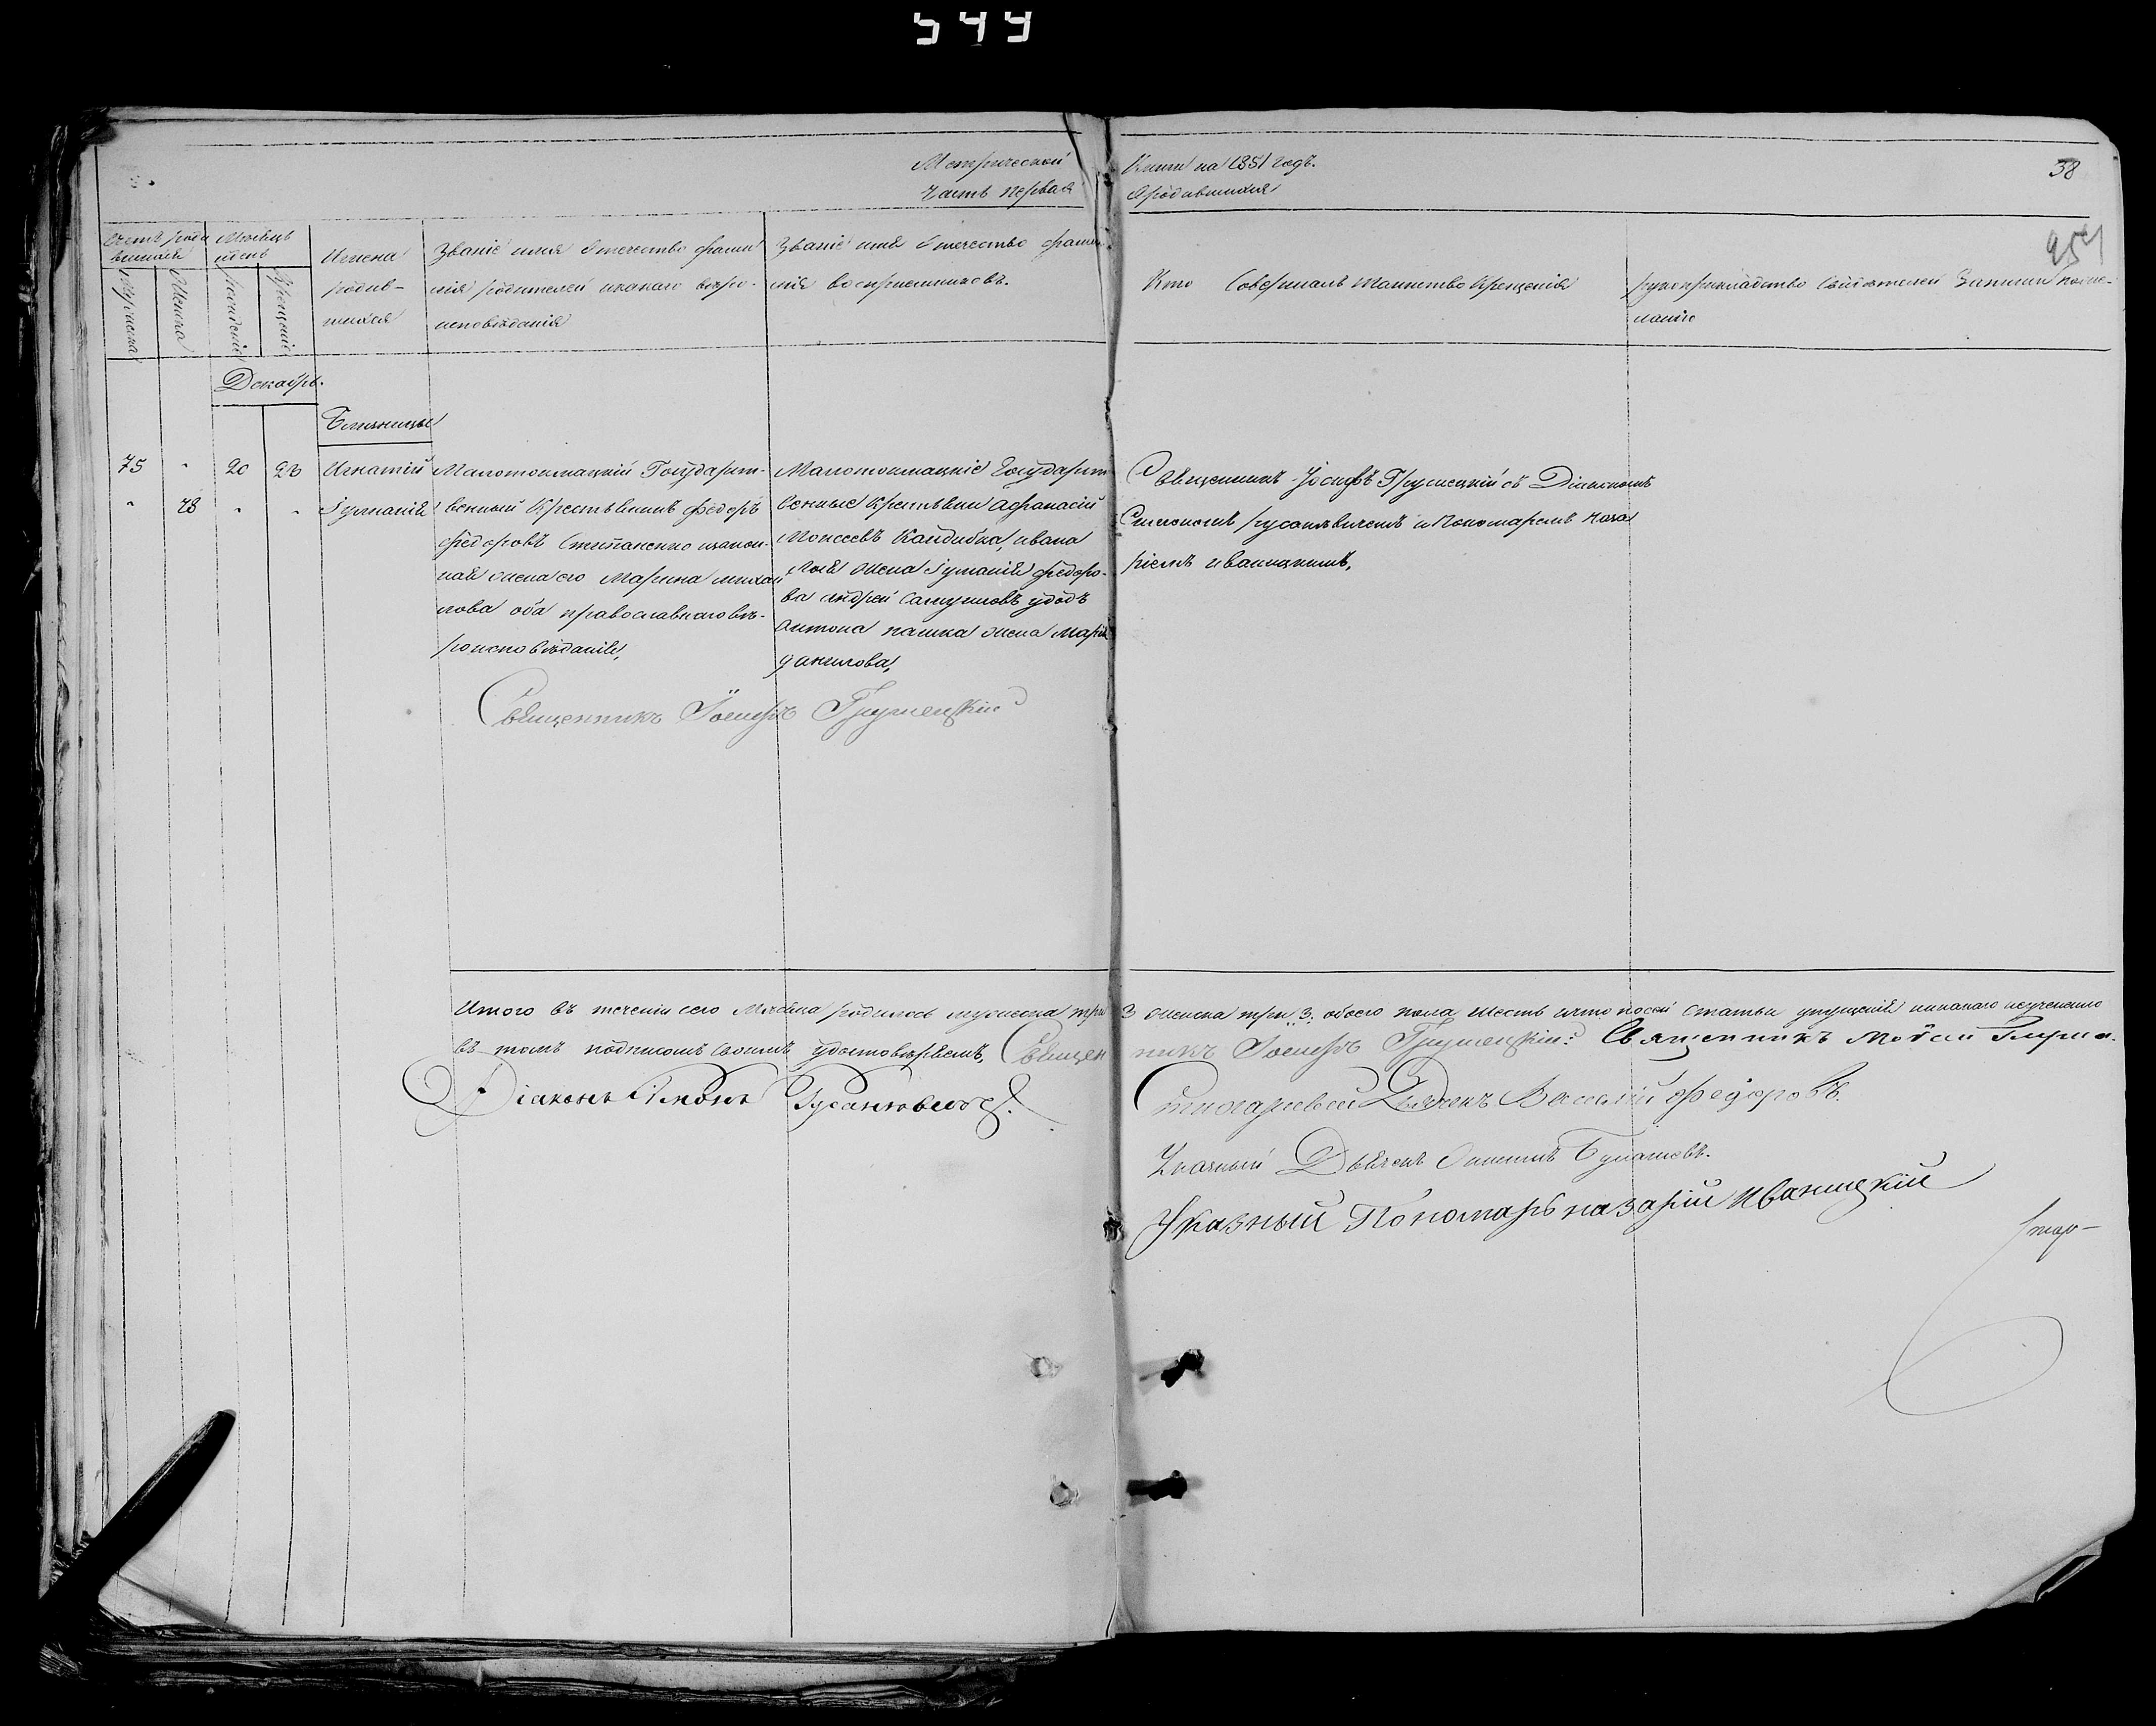 544
Метрической Книги на 1851 годъ. 38
Часть первая о родившихся
254
Счетъ роди
вшихся
Мужеска
Женска
Месяцъ
и день
рожденіе
Крещеніе
Имена
родив-
шихся
Званіе имя Отчество фами
лія родителей и какого веро-
исповѣданія
Званіе имя Отчество фами
лія воспріемниковъ.
Кто Совершалъ Таинство Крещенія
рукоприкладство Свидѣтелей Записи по же-
ланію
Декабрь.
Близницы
75 " 20 23 Игнатій
" 78 " " Іуліанія
Малотокмацкій Государст-
венный Крестьянинъ Федоръ
Федоровъ Степаненко и закон-
ная жена его Марина михаи
лова оба православнаго вѣ-
роисповѣданія,
Малотокмацкіе Государст
венные Крестьяни Афанасій
Моисеевъ Кандиба, ивана
жена Іуліанія федоро-
ва андрей Самуиловъ удодъ
антона пашка жена марія
данилова,
Священникъ Іосифъ Грушецкій съ Діакономъ
Симономъ русановичемъ и Пономаремъ Наза
ріемъ иваницкимъ,
Священникъ Іосифъ Грушецкій
Итого въ теченіи сего Месяца родилось мужеска три 3 женска три 3, обоего пола шесть и что по сей статьи упущенія никакого неучинено
въ томъ подписомъ своимъ удостовѣряемъ, Священникъ Іосифъ Грушецкій: Священникъ Моѵсей
Діаконъ Симонъ Русановичъ.
Дьячекъ Василій Федоровъ.
Дьячекъ
Указный Пономарь назарій Иваницкій